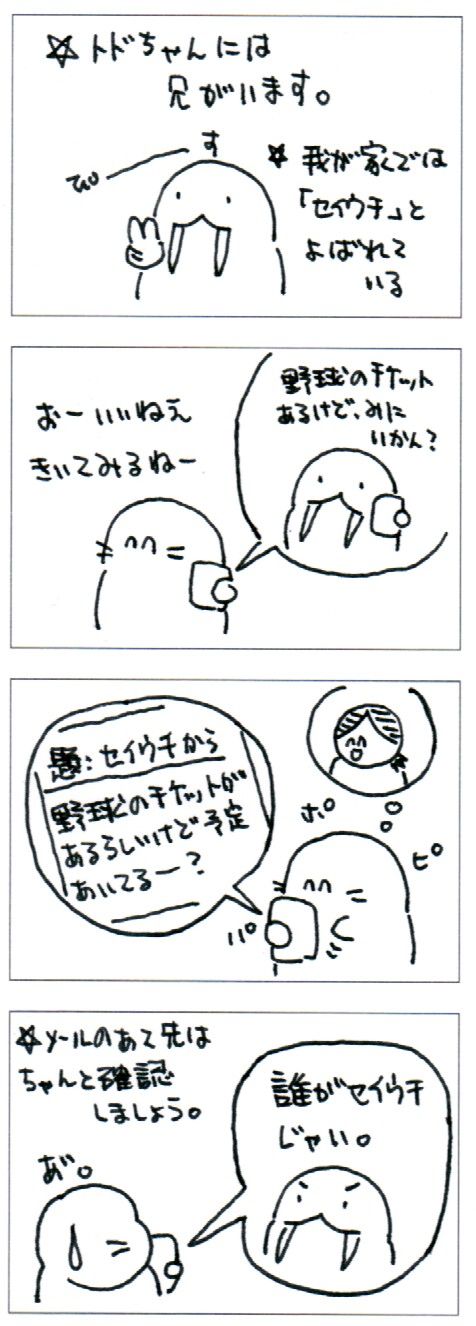 ☆トドちゃんには
兄がいます。
す
☆我が家では
「セイウチ」と
よばれて
いる
野球のチケット
あるけど、みに
いかん?
おーいいねえ
きいてみるねー
題:セイウチから
野球のチケットが
あるらしいけど予定
あいてるー?
ポ
ピ
パ
☆メールのあて先は
ちゃんと確認
しましょう。
誰がセイウチ
じゃい。
あ゛。